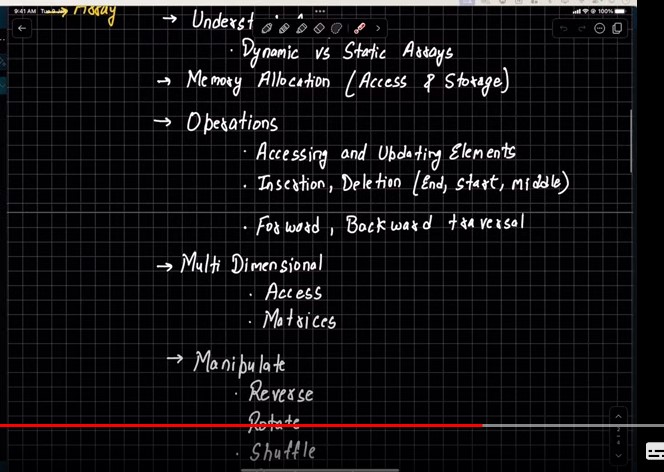 9:41 AM
100%
→ Array
→
· Dynamic vs Static Arrays
→ Memory Allocation (Access & Storage)
→ Operations
· Accessing and Updating Elements
· Insertion, Deletion (End, start, middle)
· Forward, Backward traversal
→ Multi Dimensional
· Access
· Matrices
→ Manipulate
· Reverse
· Rotate
· Shuffle